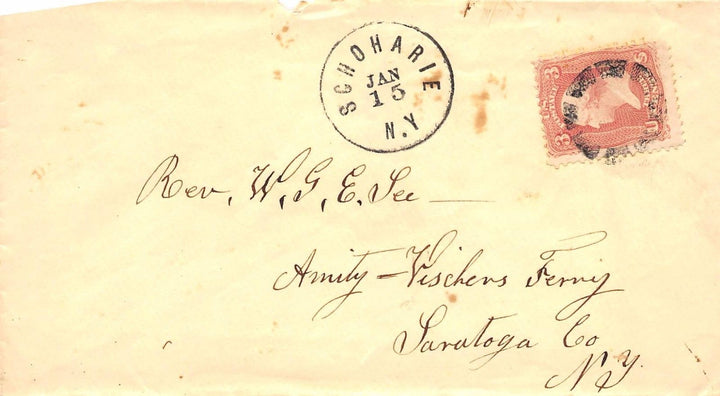 SCHOHARIE
JAN
15
N.Y
3 3
Rev. W. G. E. See
Amity - Vischers Ferry
Saratoga Co
N.Y.